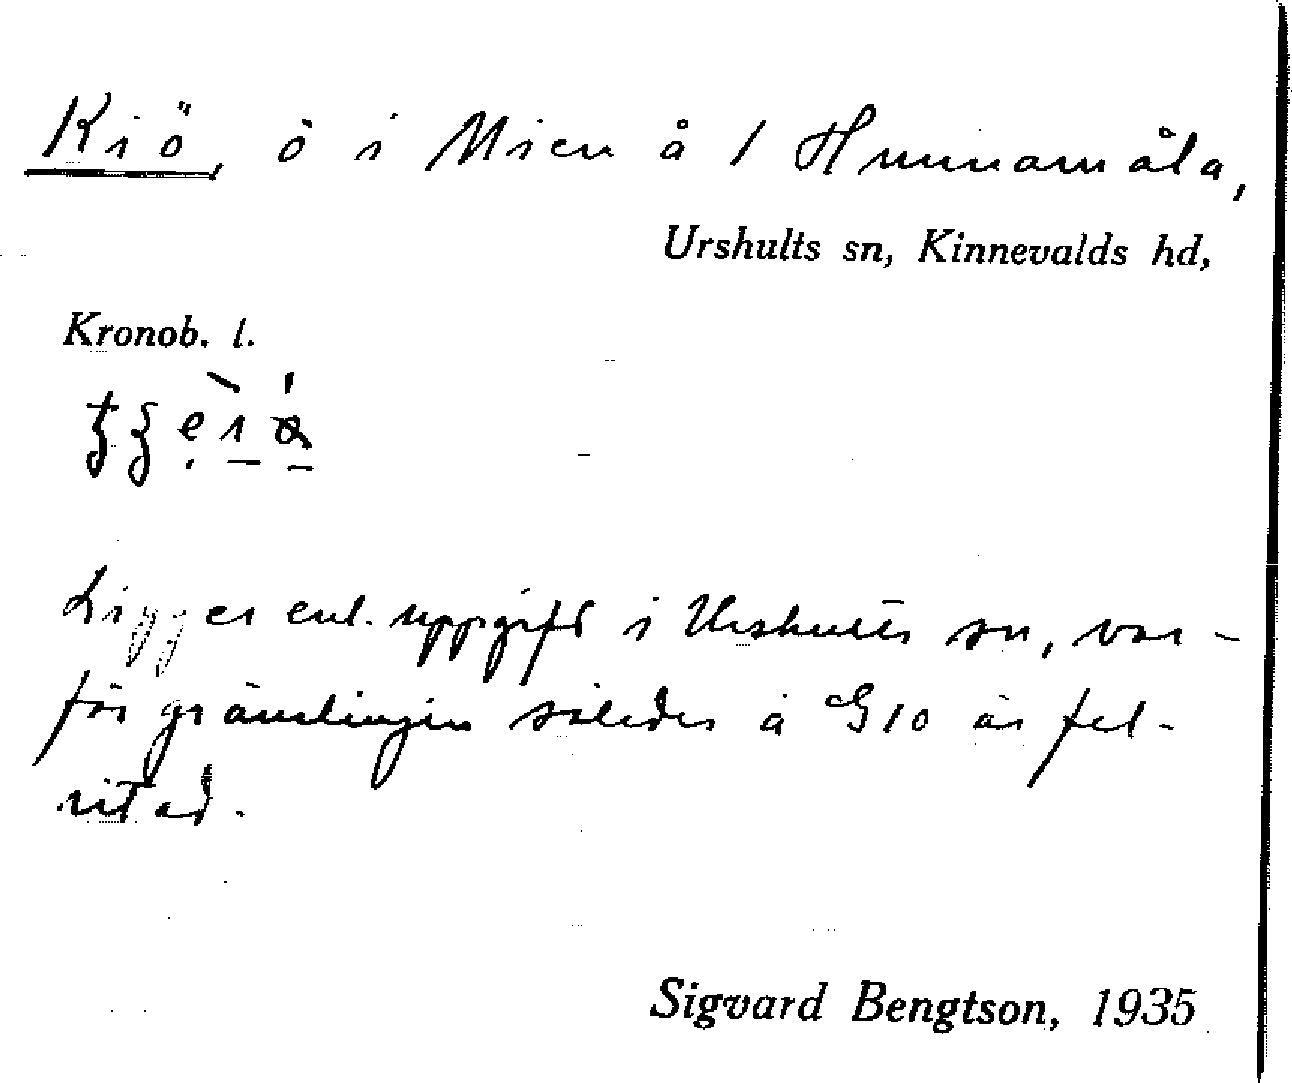 Kiö, ö i Mien å 1 Hunnamåla,
Urshults sn, Kinnevalds hd,
Kronob. l.
Ligger enl. uppgift i Urshults sn, var-
för gränslinjen således å G10 är fel-
ritad.
Sigvard Bengtson, 1935